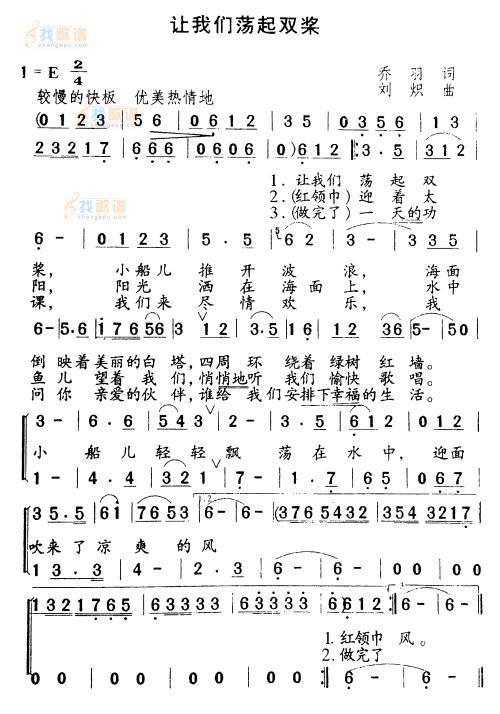 找歌谱
zhangepu.com
让我们荡起双桨
1 = E 2/4
乔 羽 词
较慢的快板 优美热情地
刘 炽 曲
(0 1 2 3 | 5 6 | 0 6 1 2 | 3 5 | 0 3 5 6 | 1 3 |
2 3 2 1 7 | 6 6 6 | 0 6 0 5 | 6 0) 6 1 2 |: 3 · 5 | 3 1 2 |
找歌谱
zhangepu.com
1. 让我们 荡 起 双
2. (红领巾) 迎 着 太
3. (做完了) 一 天的功
6 - | 0 1 2 3 | 5 . 5 | 6 2 | 3 - | 3 0 3 5 |
桨, 小船儿 推 开 波 浪, 海面
阳, 阳光 洒 在 海 面 上, 水中
课, 我们来 尽 情 欢 乐, 我
6 - | 5. 6 | 1 7 6 5 6 | 3 1 2 | 3 . 5 | 1 2 3 6 | 5 - | 5 0 |
倒 映着美丽的白 塔,四周 环 绕着 绿树 红 墙。
鱼 儿 望着 我 们,悄悄地听 我们 愉快 歌 唱。
问 你 亲爱的伙 伴,谁给 我们安排下幸福的生 活。
3 - | 6 . 6 | 5 4 3 | 2 - | 2 . 3 | 1 2 | 6 - | 0 1 2 |
小 船 儿 轻 轻 飘 荡 在 水 中, 迎面
1 - | 4 . 4 | 3 2 1 | 7 - | 7 . 1 | 7 6 5 | 6 - | 0 6 7 |
3 5 . 5 | 6 1 | 7 6 5 3 | 6 - | 6 - | (3 7 6 5 4 3 2 | 3 5 4 3 2 1 7 |
1.2
吹来了 凉 爽 的 风
1 3 . 3 | 2 3 | 5 5 3 | 6 - | 6 - | 0 0 | 0 0 |
1 3 2 1 7 6 5 | 6 3 3 3 3 | 6 3 3 3 3 3 | 6 6 1 2 :| 6 - | 6 - ||
3
1. 红领巾 风。
2. 做完了
0 0 | 0 0 | 0 0 | 0 0 :| 6 - | 6 - ||